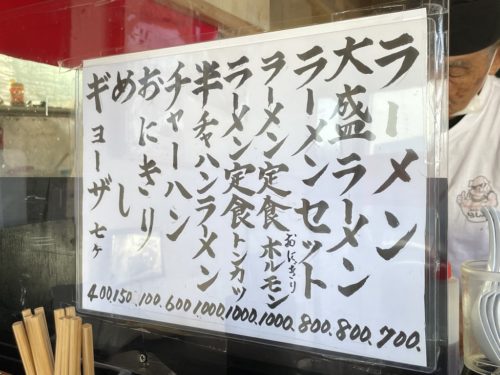 ラーメン 700.
大盛ラーメン 800.
ラーメンセット おにぎり 800.
ラーメン定食 ホルモン 1000.
ラーメン定食 トンカツ 1000.
半チャハンラーメン 1000.
チャーハン 600
おにきり 100.
めし 150.
ギョーザ 七ケ 400